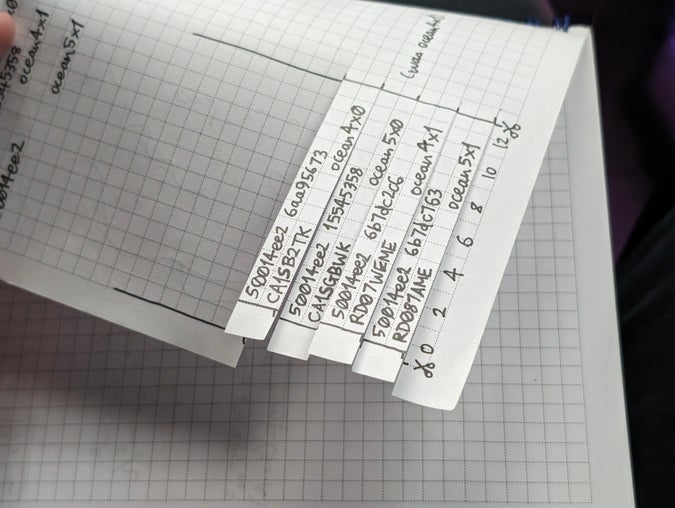 ocean4x1
ocean5x1
(was ocean4x1)
50014ee2 6aa95673
CA1SB2TK ocean4x0
50014ee2 15545358
CA1SGBWK ocean5x0
50014ee2 6b7dc2d6
RD07WEME ocean4x1
50014ee2 6b7dc763
RD087AME ocean5x1
0 2 4 6 8 10 12